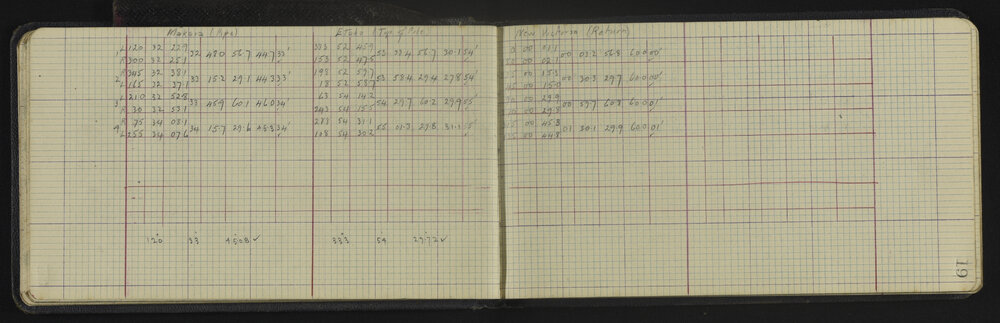 Makora (Apex) Etoko (Top of Pile) New Victoria (Return)
L 120 32 22.9 333 52 45.9 00 01.1
1 32 48.0 56.7 44.7 33' 52 33.4 56.7 30.1 54' 00 03.2 56.8 60.0 00'
R 300 32 25.1 153 52 47.5 00 02.1
R 345 32 38.1 198 52 59.7 00 15.3
2 33 15.2 29.1 44.3 33' 53 58.4 29.4 27.8 54' 00 30.3 29.7 60.0 00'
L 165 32 37.1 18 52 58.7 00 15.0
L 210 32 52.8 63 54 14.2 00 29.9
3 33 45.9 60.1 46.0 34' 54 29.7 60.2 29.9 55' 00 59.7 60.3 60.0 01'
R 30 32 53.1 243 54 15.5 00 29.8
R 75 34 08.1 283 54 31.1 00 45.3
4 34 15.7 29.6 45.3 34' 55 01.3 29.8 31.1 55' 01 30.1 29.9 60.0 01'
L 255 34 07.6 108 54 30.2 00 44.8
120 33 45.08 ✓ 333 54 29.72 ✓
19